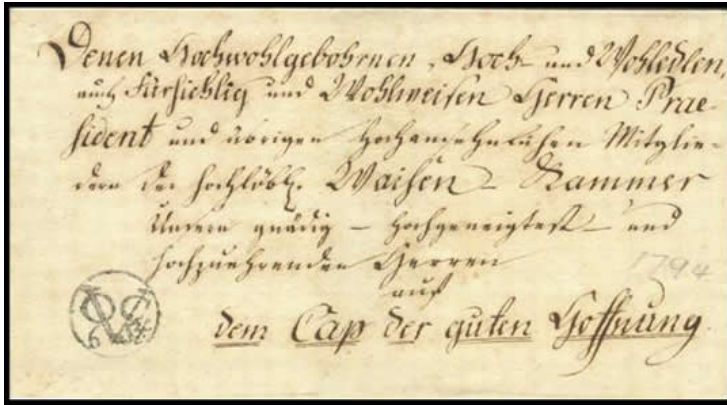 Denen Hochwohlgebohrnen, Hoch- und Wohledlen,
auch Fürsichtig und Wohlweisen Herren Prae-
sident und übrigen Hochansehnlichen Mitglie-
dern der hochlöbl. Waisen-Kammer
Unsern gnädig- hochgeneigtest- und
hochzuehrenden Herren
auf
dem Cap der guten Hoffnung
1794